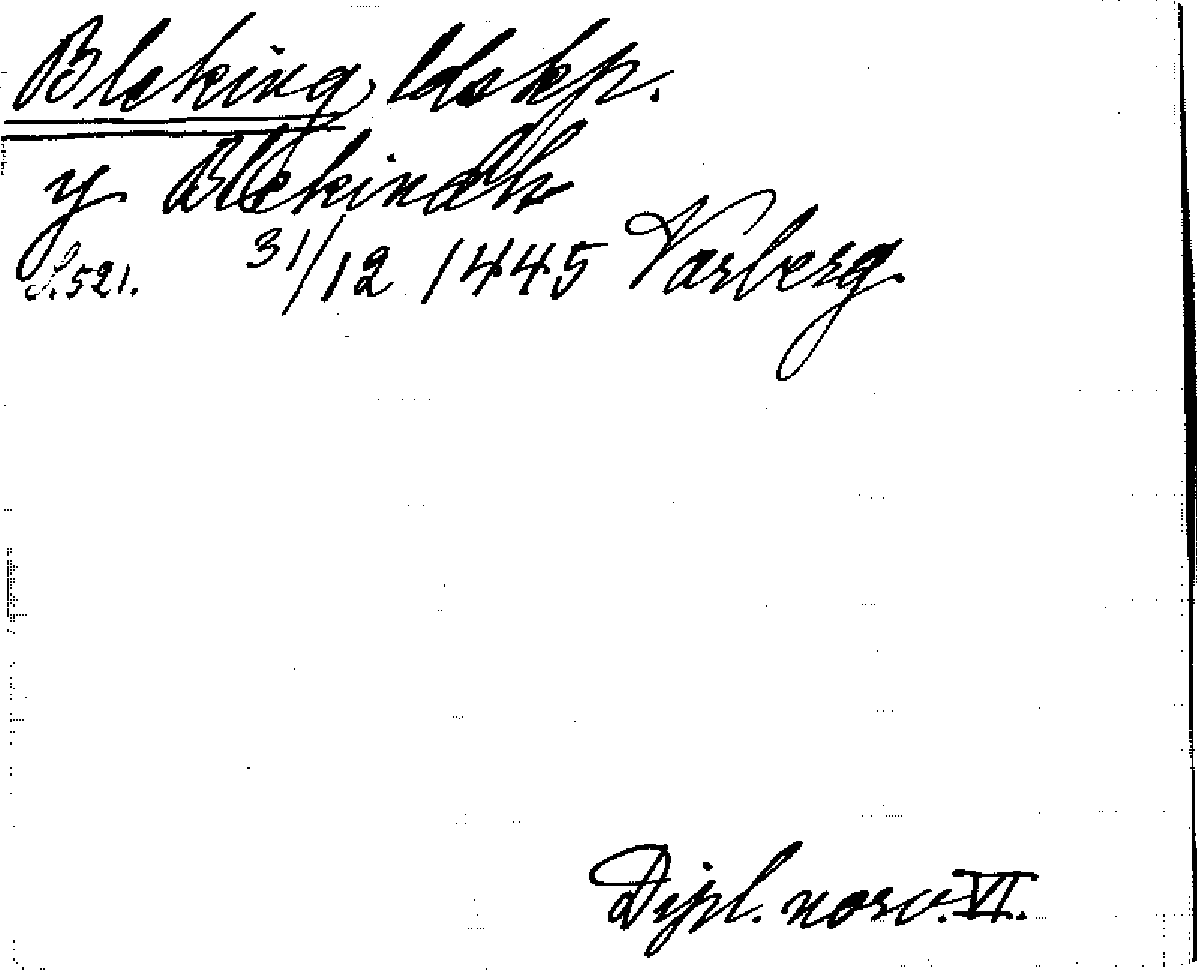 Bleking, ldskp.
y Blekindh
S. 521. 31/12 1445 Varberg.
Dipl. norv. VI.